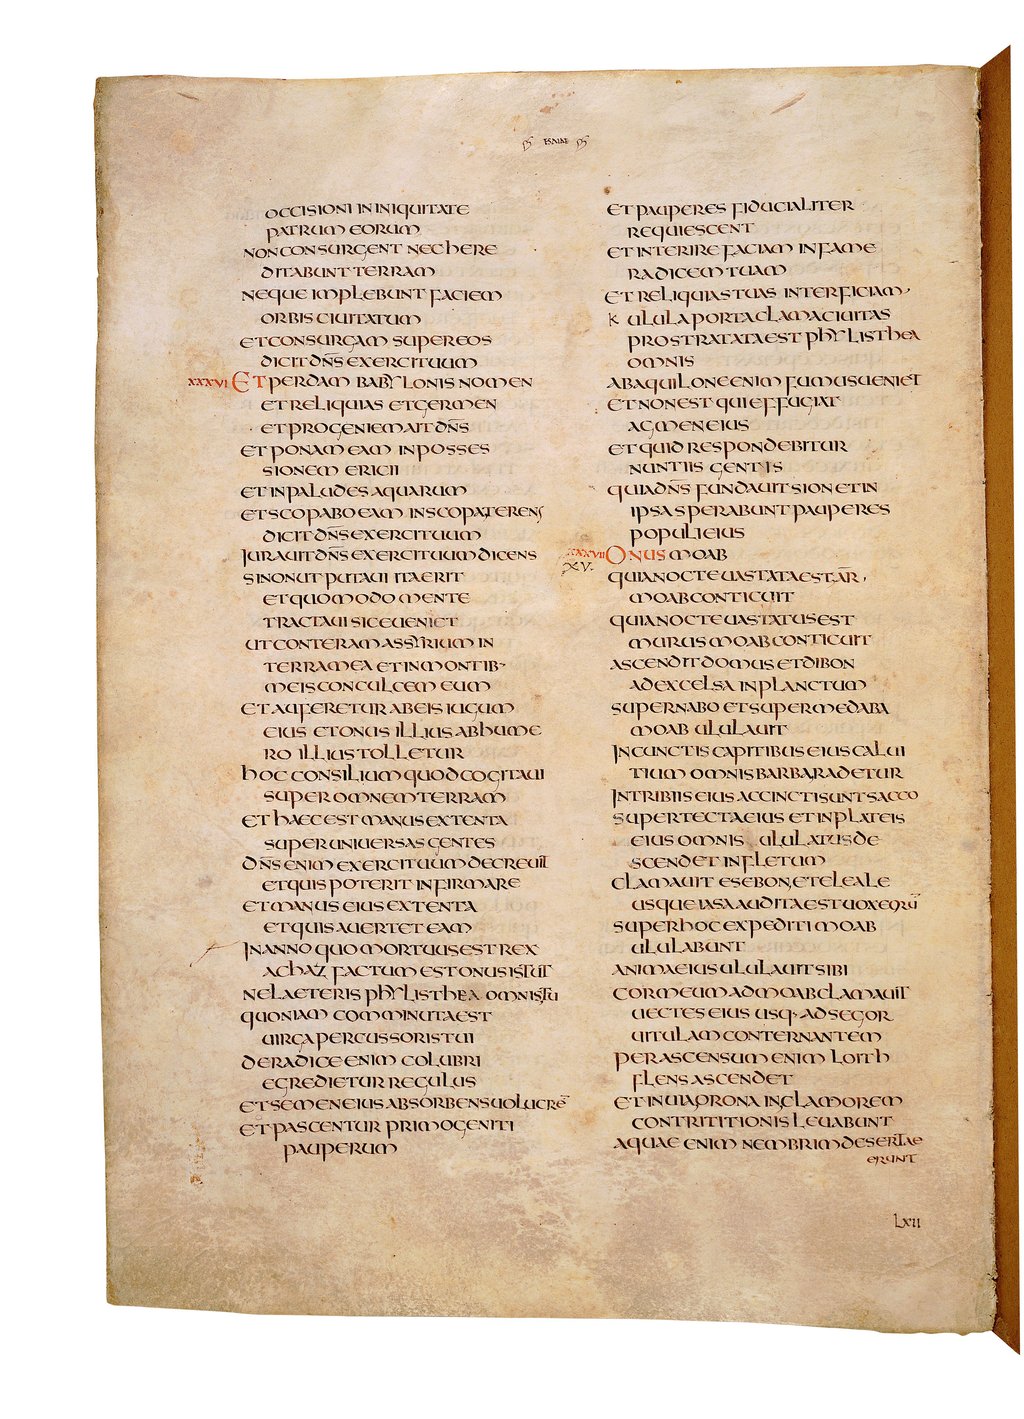 ESAIAE
OCCISIONI IN INIQUITATE
PATRUM EORUM
NON CONSURGENT NEC HERE
DITABUNT TERRAM
NEQUE IMPLEBUNT FACIEM
ORBIS CIUITATUM
ET CONSURGAM SUPER EOS
DICIT DN̄S EXERCITUUM
XXXVI ET PERDAM BABYLONIS NOMEN
ET RELIQUIAS ET GERMEN
ET PROGENIEM AIT DN̄S
ET PONAM EAM IN POSSES
SIONEM ERICII
ET IN PALUDES AQUARUM
ET SCOPABO EAM IN SCOPA TERENS
DICIT DN̄S EXERCITUUM
IURAUIT DN̄S EXERCITUUM DICENS
SI NON UT PUTAUI ITA ERIT
ET QUOMODO MENTE
TRACTAUI SIC EUENIET
UT CONTERAM ASSYRIUM IN
TERRA MEA ET IN MONTIB·
MEIS CONCULCEM EUM
ET AUFERETUR AB EIS IUGUM
EIUS ET ONUS ILLIUS AB HUME
RO ILLIUS TOLLETUR
HOC CONSILIUM QUOD COGITAUI
SUPER OMNEM TERRAM
ET HAEC EST MANUS EXTENTA
SUPER UNIUERSAS GENTES
DN̄S ENIM EXERCITUUM DECREUIT
ET QUIS POTERIT INFIRMARE
ET MANUS EIUS EXTENTA
ET QUIS AUERTET EAM
IN ANNO QUO MORTUUS EST REX
ACHAZ FACTUM EST ONUS ISTUT
NE LAETERIS PHYLISTHEA OMNIS TU
QUONIAM COMMINUTA EST
UIRGA PERCUSSORIS TUI
DE RADICE ENIM COLUBRI
EGREDIETUR REGULUS
ET SEMEN EIUS ABSORBENS UOLUCRĒ
ET PASCENTUR PRIMOGENITI
PAUPERUM
ET PAUPERES FIDUCIALITER
REQUIESCENT
ET INTERIRE FACIAM IN FAME
RADICEM TUAM
ET RELIQUIAS TUAS INTERFICIAM
K ULULA PORTA CLAMA CIUITAS
PROSTRATA TA EST PHYLISTHEA
OMNIS
AB AQUILONE ENIM FUMUS UENIET
ET NON EST QUI EFFUGIAT
AGMEN EIUS
ET QUID RESPONDEBITUR
NUNTIIS GENTIS
QUIA DN̄S FUNDAUIT SION ET IN
IPSA SPERABUNT PAUPERES
POPULI EIUS
XXXVII ONUS MOAB
XV. QUIA NOCTE UASTATA EST AR
MOAB CONTICUIT
QUIA NOCTE UASTATUS EST
MURUS MOAB CONTICUIT
ASCENDIT DOMUS ET DIBON
AD EXCELSA IN PLANCTUM
SUPER NABO ET SUPER MEDABA
MOAB ULULAUIT
IN CUNCTIS CAPITIBUS EIUS CALUI
TIUM OMNIS BARBA RADETUR
IN TRIBIIS EIUS ACCINCTI SUNT SACCO
SUPER TECTA EIUS ET IN PLATEIS
EIUS OMNIS ULULATUS DE
SCENDET IN FLETUM
CLAMAUIT ESEBON ET ELEALE
USQUE IASA AUDITA EST UOX EORŪ
SUPER HOC EXPEDITI MOAB
ULULABUNT
ANIMA EIUS ULULAUIT SIBI
COR MEUM AD MOAB CLAMAUIT
UECTES EIUS USQ· AD SEGOR
UITULAM CONTERNANTEM
PER ASCENSUM ENIM LOITH
FLENS ASCENDET
ET IN UIA PRONA IN CLAMOREM
CONTRITITIONIS LEUABUNT
AQUAE ENIM NEMBRIM DESERTAE
ERUNT
LXII